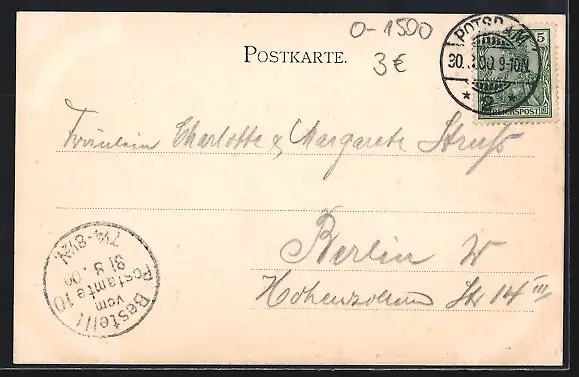 0-1500
POSTKARTE.
3€
POTSDAM
30.3.00. 9-10N.
* 2 *
5
REICHSPOST
Fräulein Charlotte & Margarete
Berlin W
Hohenzollern Str 14 III
Bestellt
vom
Postamte 10
31.3.00
7¼-8½N.